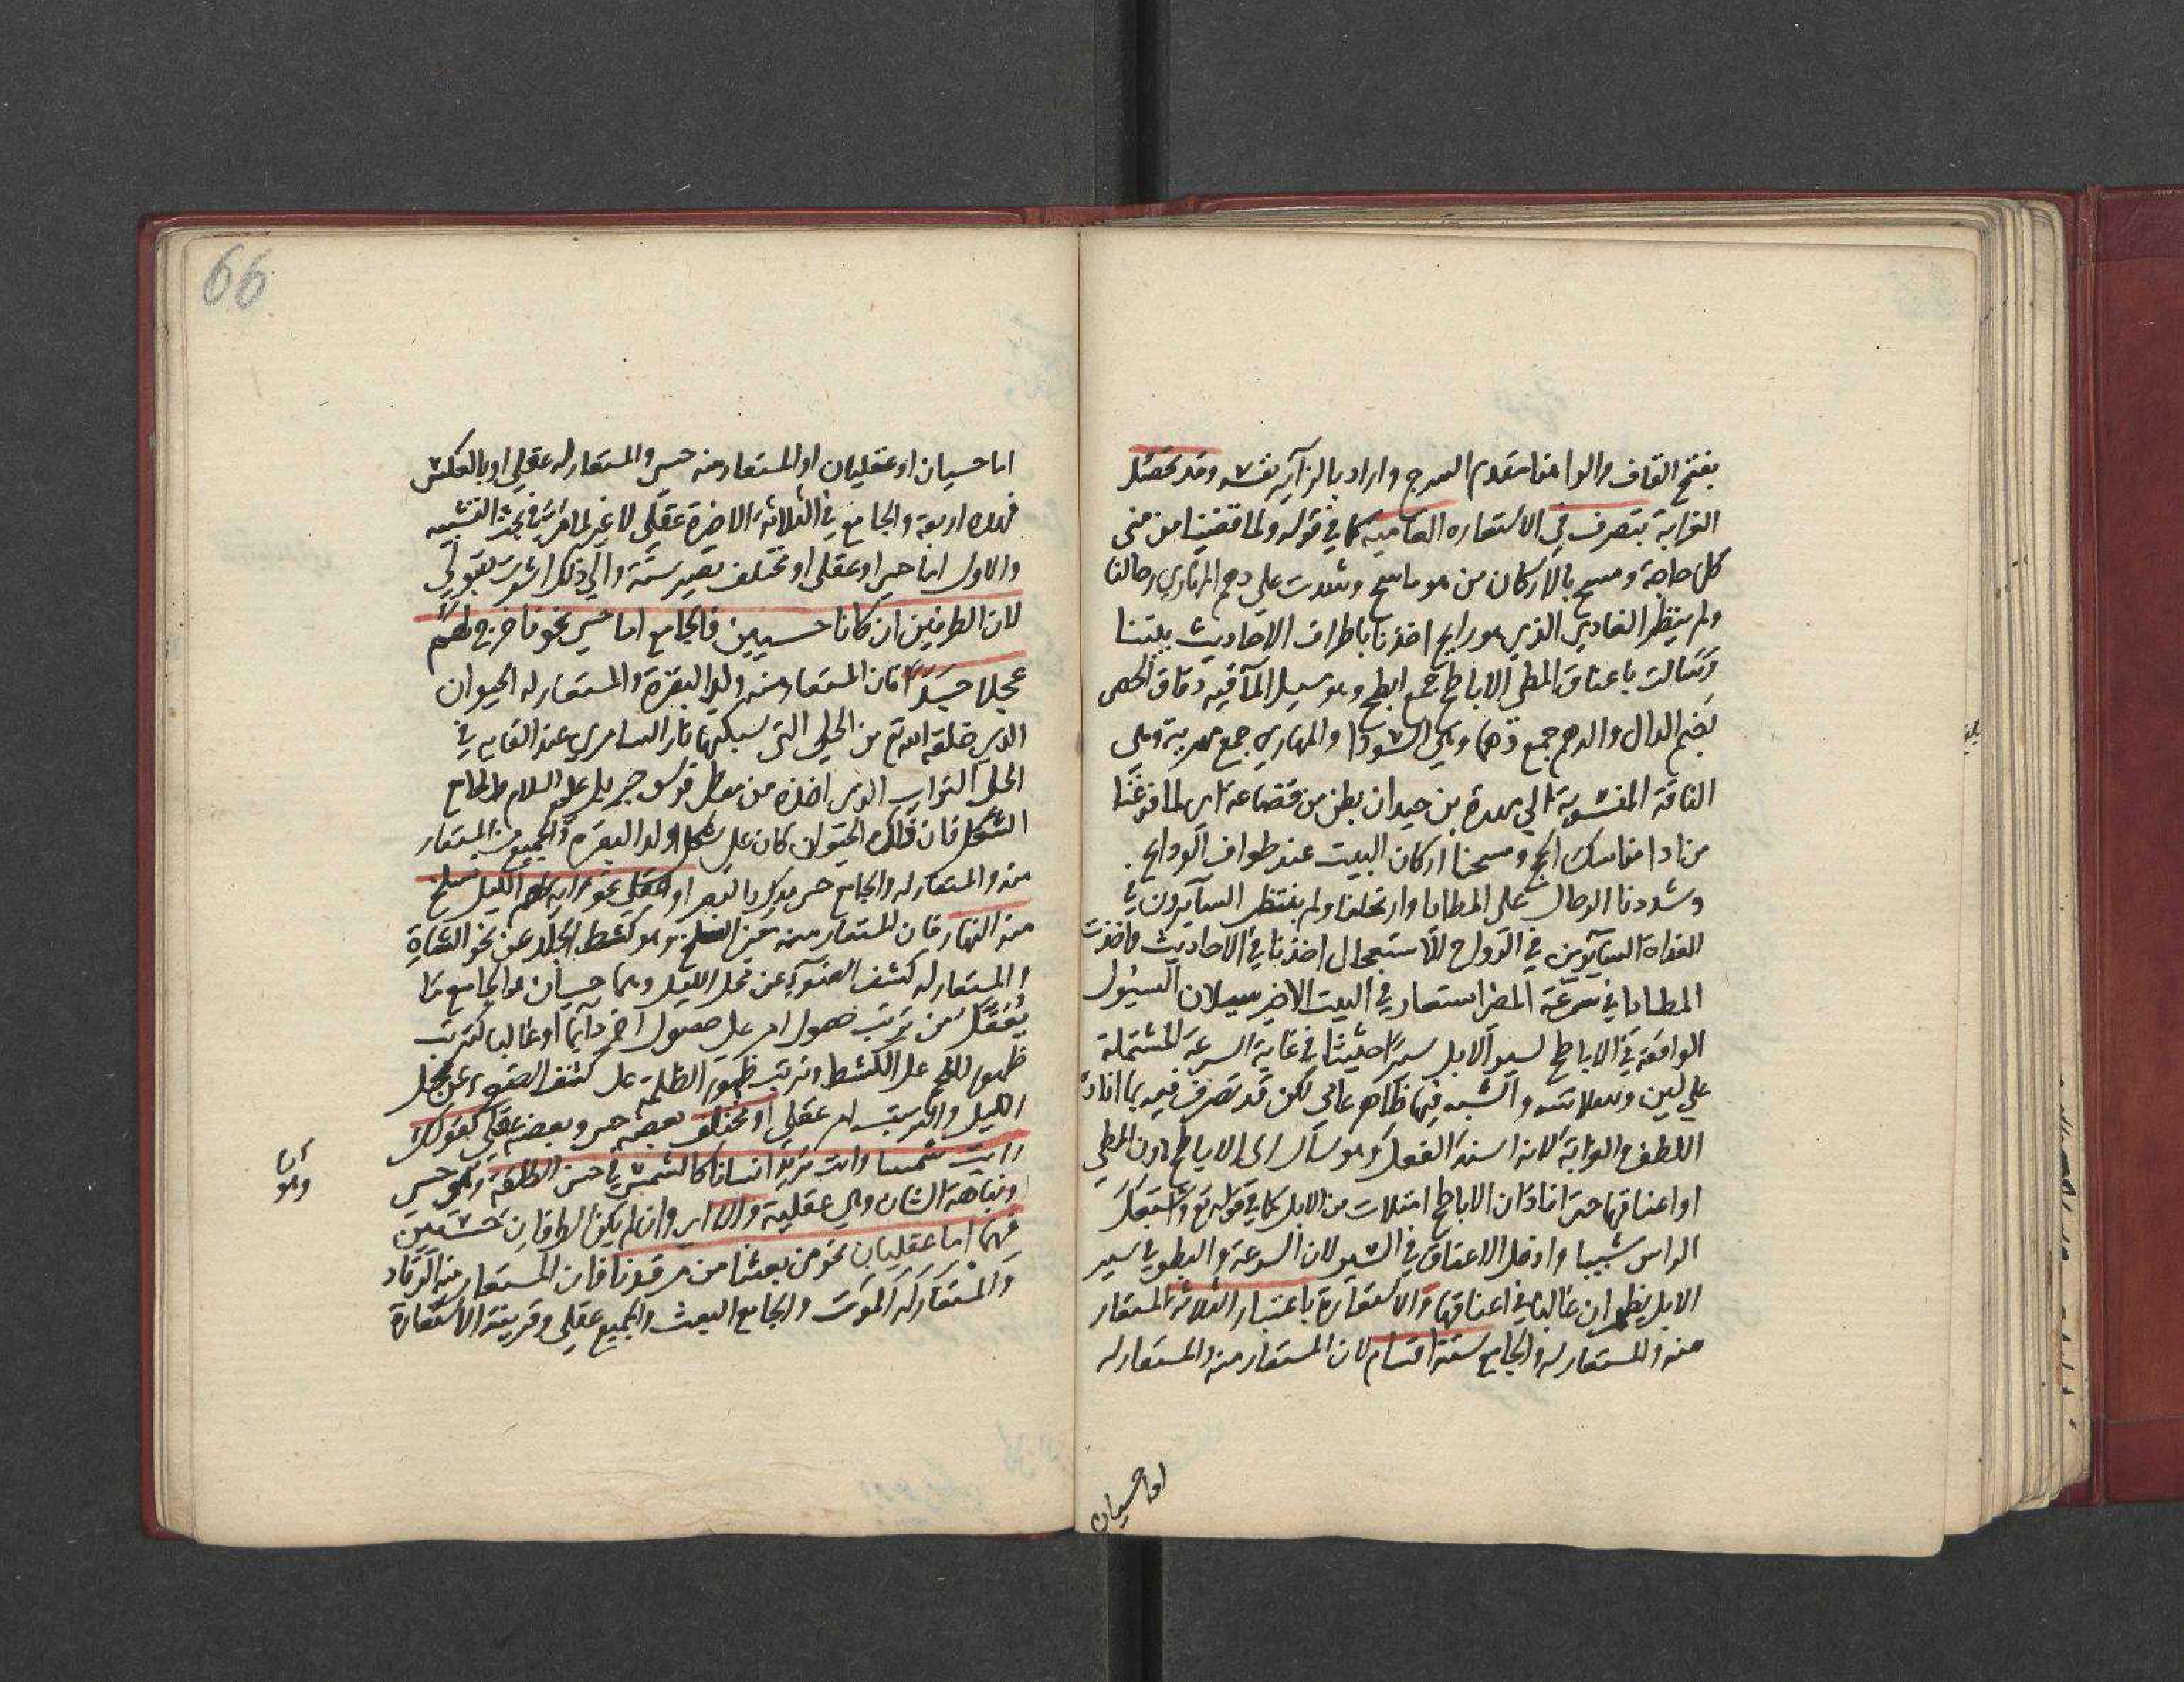 بفتح القاف والوا مقدم السرج واراد بالزائر نفسه وقد تحصل
الغرابة بتصرف في الاستعاره العامية كما في قوله ولما قضينا من منى
كل حاجة ومسح بالاركان من هو ماسح وشدت على دهم المهاري رحالنا
ولم ينظر الغادي الذي هو رايح اخذنا باطراف الاحاديث بيننا
وسالت باعناق المطي الاباطح جمع ابطح وهو مسيل المآ فيه دقاق الحصى
بضم الدال والدهم جمع دهما وهي السودا والمهاري جمع مهرية وهي
الناقة المنسوبة الى مهرة بن حيدان بطن من قضاعة اي لما فرغنا
من ادا مناسك الحج ومسحنا اركان البيت عند طواف الوداع
وشددنا الرحال على المطايا وارتحلنا ولم ينتظر السآيرون في
الغداة السآيرين في الرواح للاستعجال اخذنا في الاحاديث واخذت
المطايا في سرعة المضي استعار في البيت الاخير سيلان السيول
الواقعة في الاباطح لسير الابل سيرا حثيثا في غاية السرعة المشتملة
على لين وسلاسة والشبه فيها ظاهر عامي لكن قد تصرف فيه بما افاد
اللطف والغرابة لانه اسند الفعل وهو سال الى الاباطح دون المطي
او اعناقها حتى افاد ان الاباطح امتلات من الابل كما في قوله تع واشتعل
الراس شيبا وادخل الاعناق في السير لان السرعة والبطو في سير
الابل يظهران غالبا في اعناقها والاستعارة باعتبار الثلاثة المستعار
منه والمستعار له والجامع ستة اقسام لان المستعار منه والمستعار له
اما حسيان
66
اما حسيان او عقليان او المستعار منه حسي والمستعار له عقلي او بالعكس
فهذه اربعة والجامع في الثلاثة الاخيرة عقلي لا غير لما عرف في بحث التشبيه
والاول اما حسي او عقلي او مختلف يصير ستة والى ذلك اشرت بقولي
لان الطرفين ان كانا حسيين فالجامع اما حسي نحو فاخرج لهم
عجلا جسدا فان المستعار منه ولد البقرة والمستعار له الحيوان
الذي خلقه الله تع من الحلي التي سبكتها نار السامري عند القايه في
الحلي التراب الذي اخذه من موطي فرس جبريل عليه السلام والجامع
الشكل فان ذلك الحيوان كان على شكل ولد البقرة والجميع من المستعار
منه والمستعار له والجامع حسي يدرك بالبصر او عقلي نحو واية لهم الليل نسلخ
منه النهار فان المستعار منه معنى السلخ وهو كشط الجلد عن نحو الشاة
والمستعار له كشف الضوء عن محل الليل وهما حسيان والجامع ما
يعقل من ترتب حصول امر على حصول اخر دايما او غالبا كترتب
ظهور اللحم على الكشط وترتب ظهور الظلمة على كشف الضوء عن محل
الليل والترتب امر عقلي او مختلف بعضه حسي وبعضه عقلي كقولك
رايت شمسا وانت تريد انسانا كالشمس في حسن الطلعة وهو حسي
ونباهة الشان وهي عقلية والا اي وان لم يكن الطرفان حسيين
فهما اما عقليان نحو من بعثنا من مرقدنا فان المستعار منه الرقاد
والمستعار له الموت والجامع البعث والجميع عقلي وقرينة الاستعارة